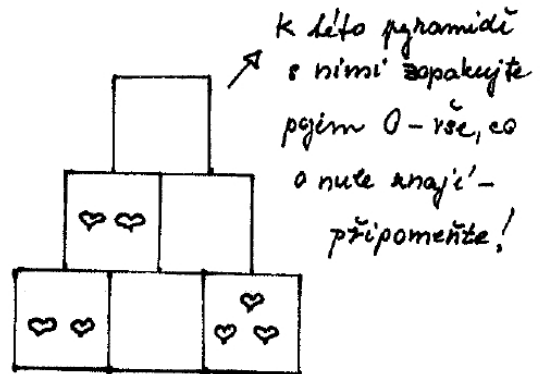 K této pyramidě
s nimi zopakujte
pojem 0 – vše, co
o nule znají –
připomeňte!